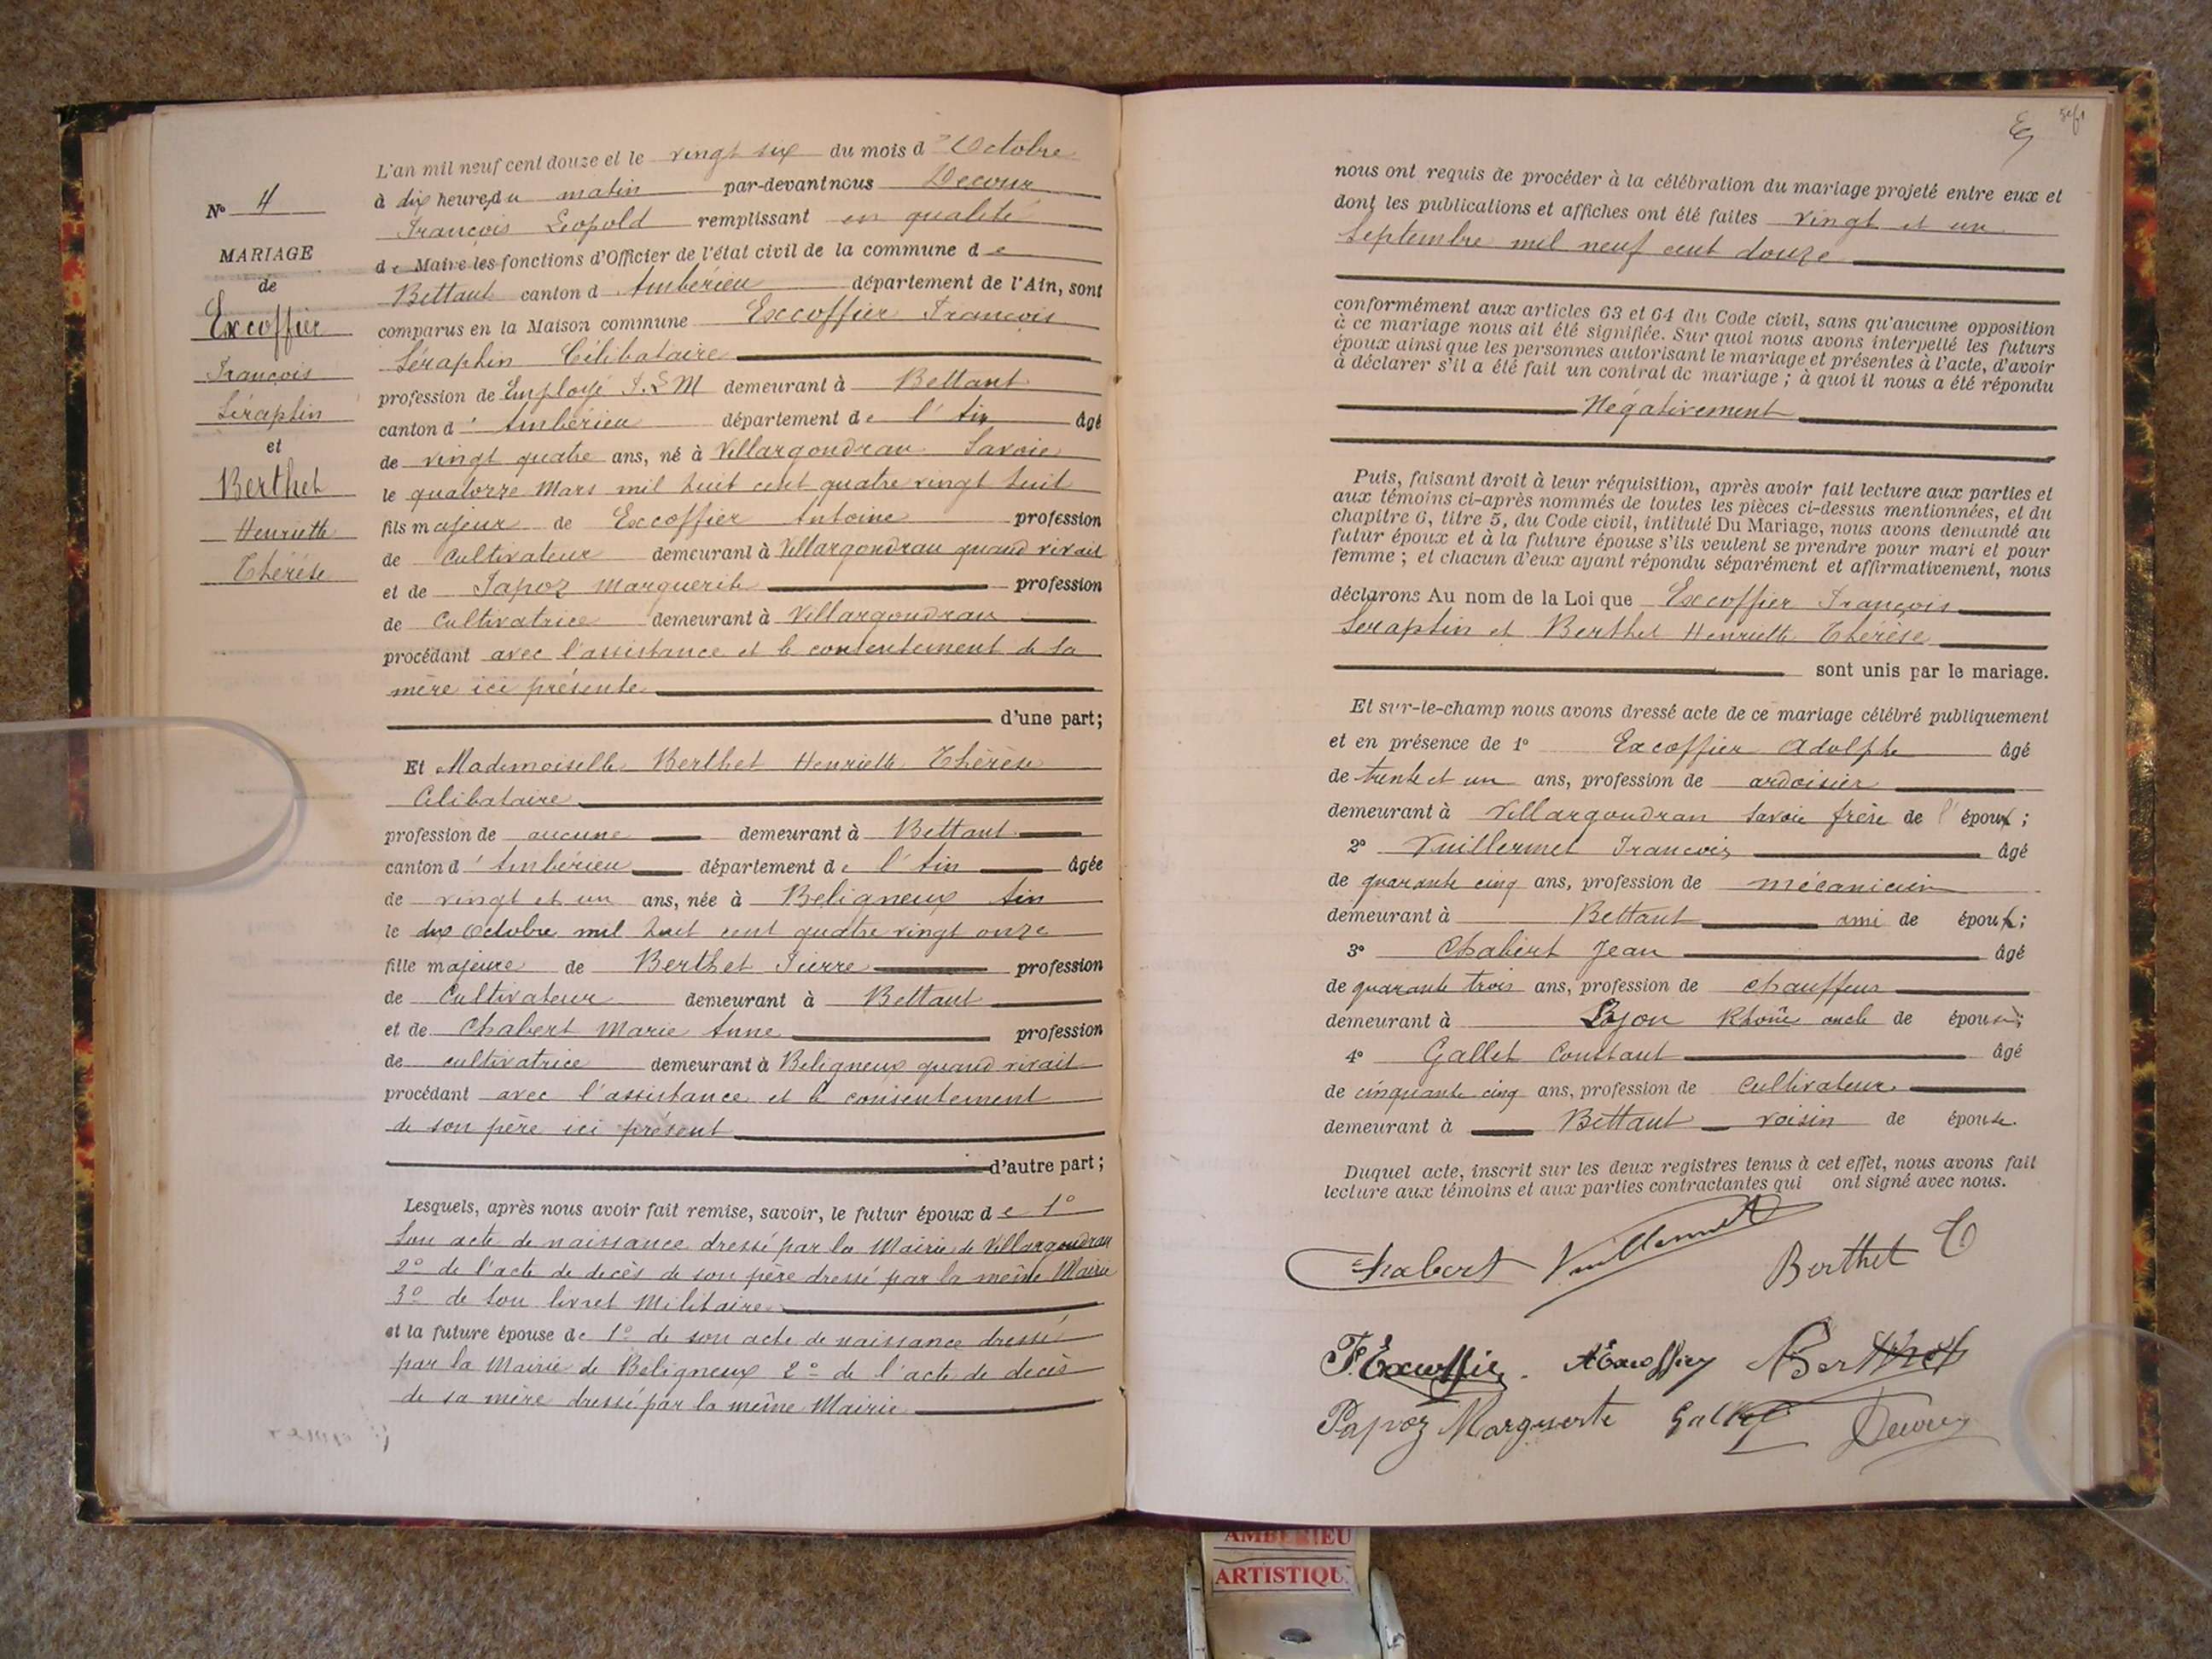 N° 4
MARIAGE
de
Excoffier
François
Séraphin
et
Berthet
Henriette
Thérèse
L'an mil neuf cent douze et le vingt six du mois d' Octobre
à dix heures du matin par-devant nous Decour
François Léopold remplissant en qualité
de Maire les fonctions d'Officier de l'état civil de la commune de
Bettant canton d'Ambérieu département de l'Ain, sont
comparus en la Maison commune Excoffier François
Séraphin Célibataire
profession de Employé P.L.M demeurant à Bettant
canton d'Ambérieu département de l'Ain âgé
de vingt quatre ans, né à Villargondran Savoie
le quatorze Mars mil huit cent quatre vingt huit
fils majeur de Excoffier Antoine profession
de Cultivateur demeurant à Villargondran quand vivait
et de Papoz Marguerite profession
de Cultivatrice demeurant à Villargondran
procédant avec l'assistance et le consentement de sa
mère ici présente
d'une part;
Et Mademoiselle Berthet Henriette Thérèse
Célibataire
profession de aucune demeurant à Bettant
canton d'Ambérieu département de l'Ain âgée
de vingt et un ans, née à Béligneux Ain
le dix Octobre mil huit cent quatre vingt onze
fille majeure de Berthet Pierre profession
de Cultivateur demeurant à Bettant
et de Chabert Marie Anne profession
de cultivatrice demeurant à Béligneux quand vivait
procédant avec l'assistance et le consentement
de son père ici présent
d'autre part;
Lesquels, après nous avoir fait remise, savoir, le futur époux de 1°
Son acte de naissance dressé par la Mairie de Villargondran
2° de l'acte de décès de son père dressé par la même Mairie
3° de son livret Militaire
et la future épouse de 1° de son acte de naissance dressé
par la Mairie de Béligneux 2° de l'acte de décès
de sa mère dressé par la même Mairie
nous ont requis de procéder à la célébration du mariage projeté entre eux et
dont les publications et affiches ont été faites vingt et un
Septembre mil neuf cent douze
conformément aux articles 63 et 64 du Code civil, sans qu'aucune opposition
à ce mariage nous ait été signifiée. Sur quoi nous avons interpellé les futurs
époux ainsi que les personnes autorisant le mariage et présentes à l'acte, d'avoir
à déclarer s'il a été fait un contrat de mariage; à quoi il nous a été répondu
Négativement
Puis, faisant droit à leur réquisition, après avoir fait lecture aux parties et
aux témoins ci-après nommés de toutes les pièces ci-dessus mentionnées, et du
chapitre 6, titre 5, du Code civil, intitulé Du Mariage, nous avons demandé au
futur époux et à la future épouse s'ils veulent se prendre pour mari et pour
femme; et chacun d'eux ayant répondu séparément et affirmativement, nous
déclarons Au nom de la Loi que Excoffier François
Séraphin et Berthet Henriette Thérèse
sont unis par le mariage.
Et sur-le-champ nous avons dressé acte de ce mariage célébré publiquement
et en présence de 1° Excoffier Adolphe âgé
de trente et un ans, profession de ardoisier
demeurant à Villargondran Savoie frère de l'époux;
2° Vuillermet François âgé
de quarante cinq ans, profession de mécanicien
demeurant à Bettant ami de époux;
3° Chabert Jean âgé
de quarante trois ans, profession de chauffeur
demeurant à Lyon Rhône oncle de épouse;
4° Gallet Constant âgé
de cinquante cinq ans, profession de Cultivateur
demeurant à Bettant voisin de épouse.
Duquel acte, inscrit sur les deux registres tenus à cet effet, nous avons fait
lecture aux témoins et aux parties contractantes qui ont signé avec nous.
Chabert Vuillermet Berthet T
F. Excoffier A Excoffier Berthet
Papoz Marguerite Gallet Decour
AMBERIEU
ARTISTIQU